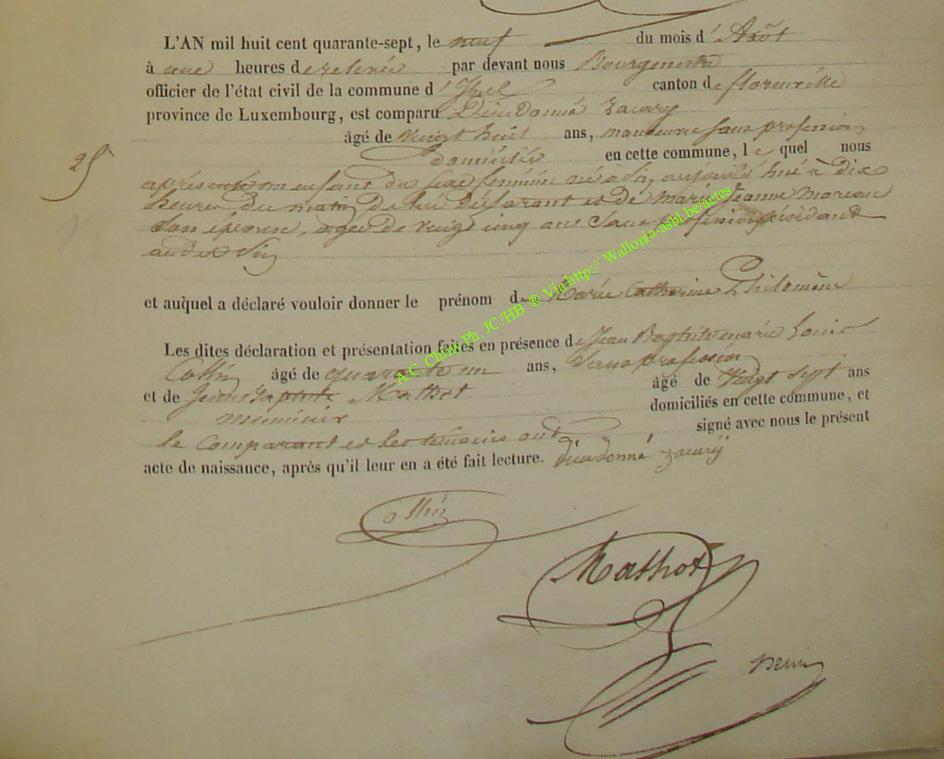 L'AN mil huit cent quarante-sept, le neuf du mois d'Août
à une heures de relevée par devant nous Bourgmestre
officier de l'état civil de la commune d' canton de florenville
province de Luxembourg, est comparu Dieudonné zacary
âgé de vingt huit ans, manoeuvre sans profession
25
domicilié en cette commune, le quel nous
a présenté un enfant du sexe féminin né à Sin, aujourd'hui à Dix
heures du matin De lui Déclarant et de marie Jeanne moreau
Son épouse, agée De vingt cinq ans Sans profession résidant
audit Sin
et auquel a déclaré vouloir donner le prénom de Marie Catherine Philomène
Les dites déclaration et présentation faites en présence de Jean Baptiste marie Louis
Collin âgé de quarante un ans, Sans profession
et de Jean Baptiste Mathot âgé de Vingt sept ans
menuisier domiciliés en cette commune, et
le comparant et les témoins ont signé avec nous le présent
acte de naissance, après qu'il leur en a été fait lecture. dieudonné zacarÿ
Collin
Mathot
A.C. Chiny Ph. JC/HB ® Via http:// Wallonia-asbl.be/actes